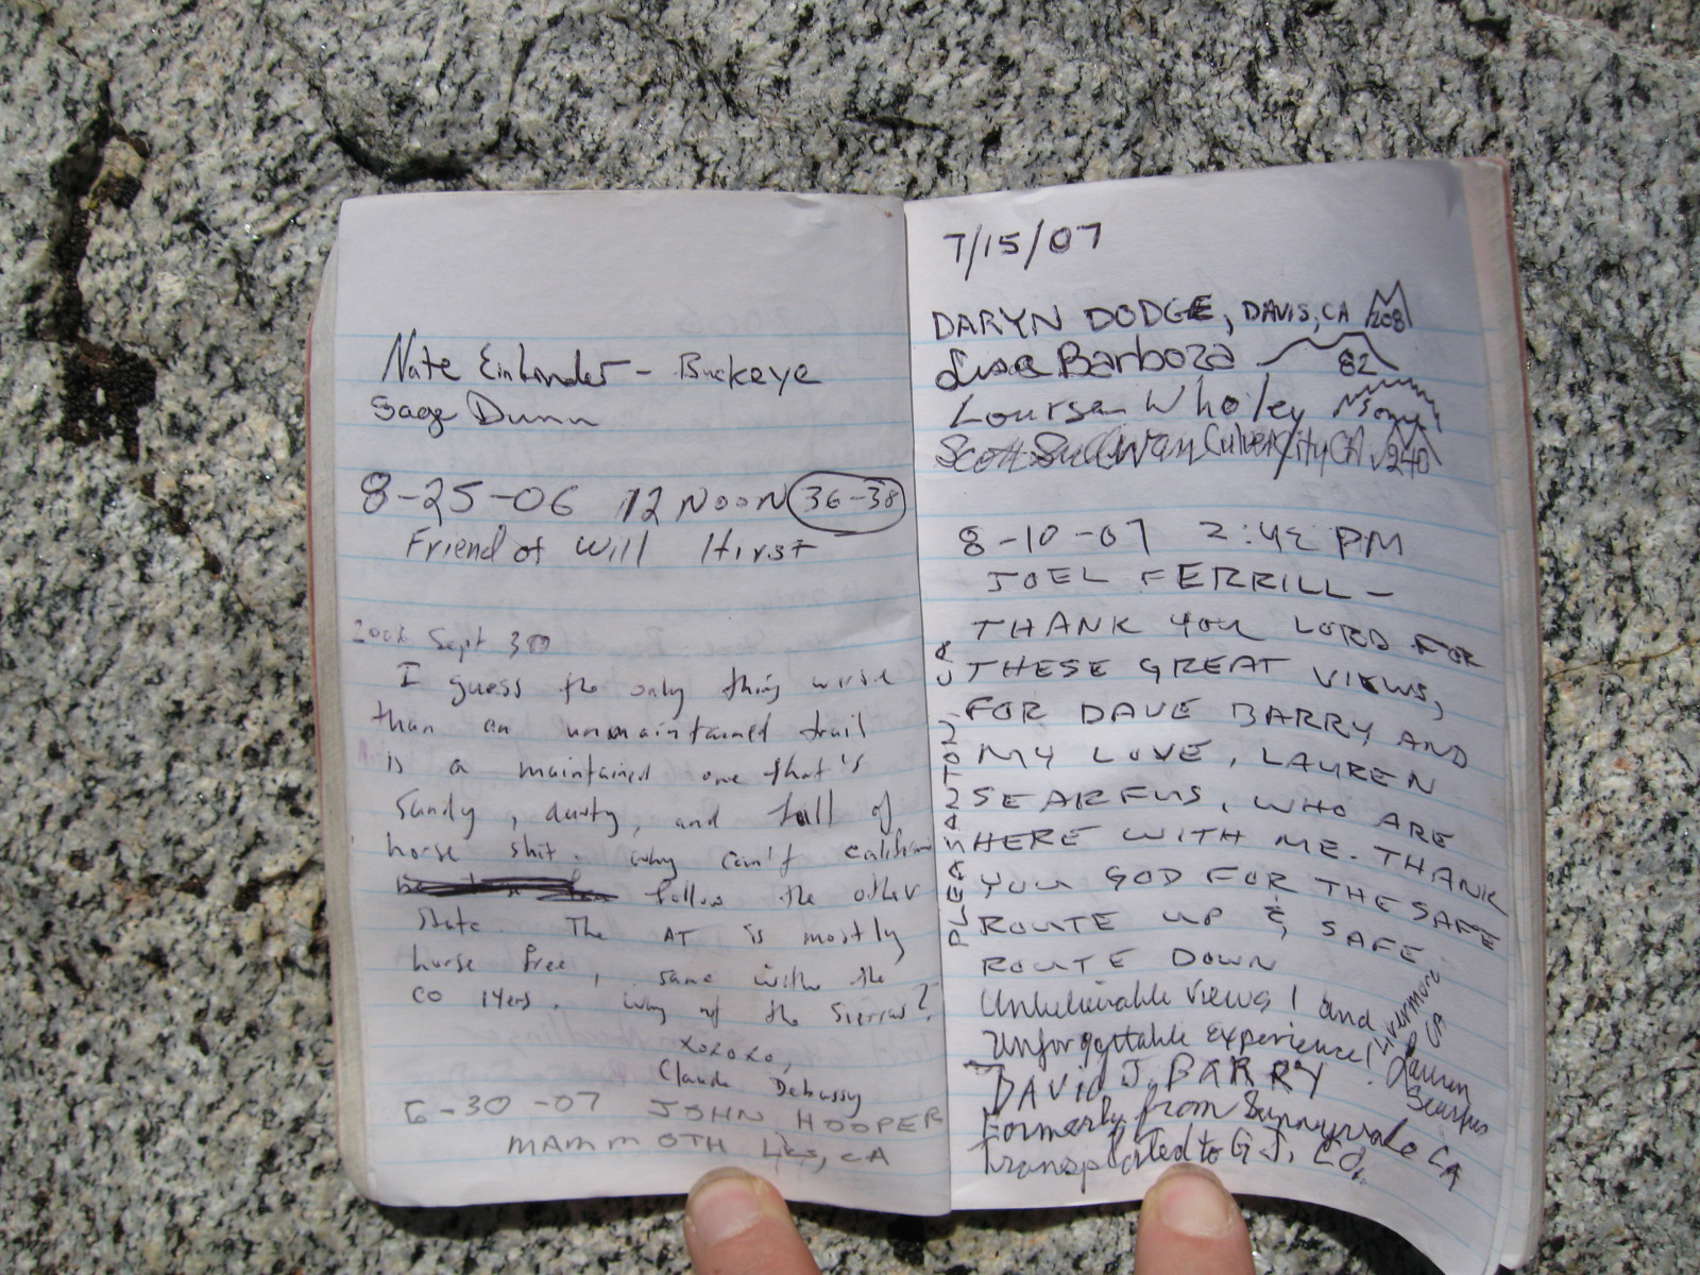 Nate Einlander - Buckeye
Sage Dunn
8-25-06 12 NOON 36-38
Friend of Will Hirst
Sept 3rd
I guess the only thing worse
than an unmaintained trail
is a maintained one that's
sandy, dusty, and full of
horse shit. why can't
follow the other
state. The AT is mostly
horse free, same with the
CO 14ers. Why not the Sierras?
xoxoxo,
Claude Debussy
6-30-07 JOHN HOOPER
MAMMOTH LKS, CA
7/15/07
DARYN DODGE, DAVIS, CA 208
Lisa Barboza 82
Wholey
Scott Sullivan Culver City CA 240
8-10-07 2:42 PM
JOEL FERRILL -
THANK YOU LORD FOR
THESE GREAT VIEWS,
FOR DAVE BARRY AND
MY LOVE, LAUREN
SEARFUS, WHO ARE
HERE WITH ME. THANK
YOU GOD FOR THE SAFE
ROUTE UP & SAFE
ROUTE DOWN
PLEASANTON, CA
Unbelievable views! and
Unforgettable experience!
Lauren
Searfus
Livermore
CA
DAVID J. BARRY
Formerly from Sunnyvale CA
Transplanted to G.J. CO.